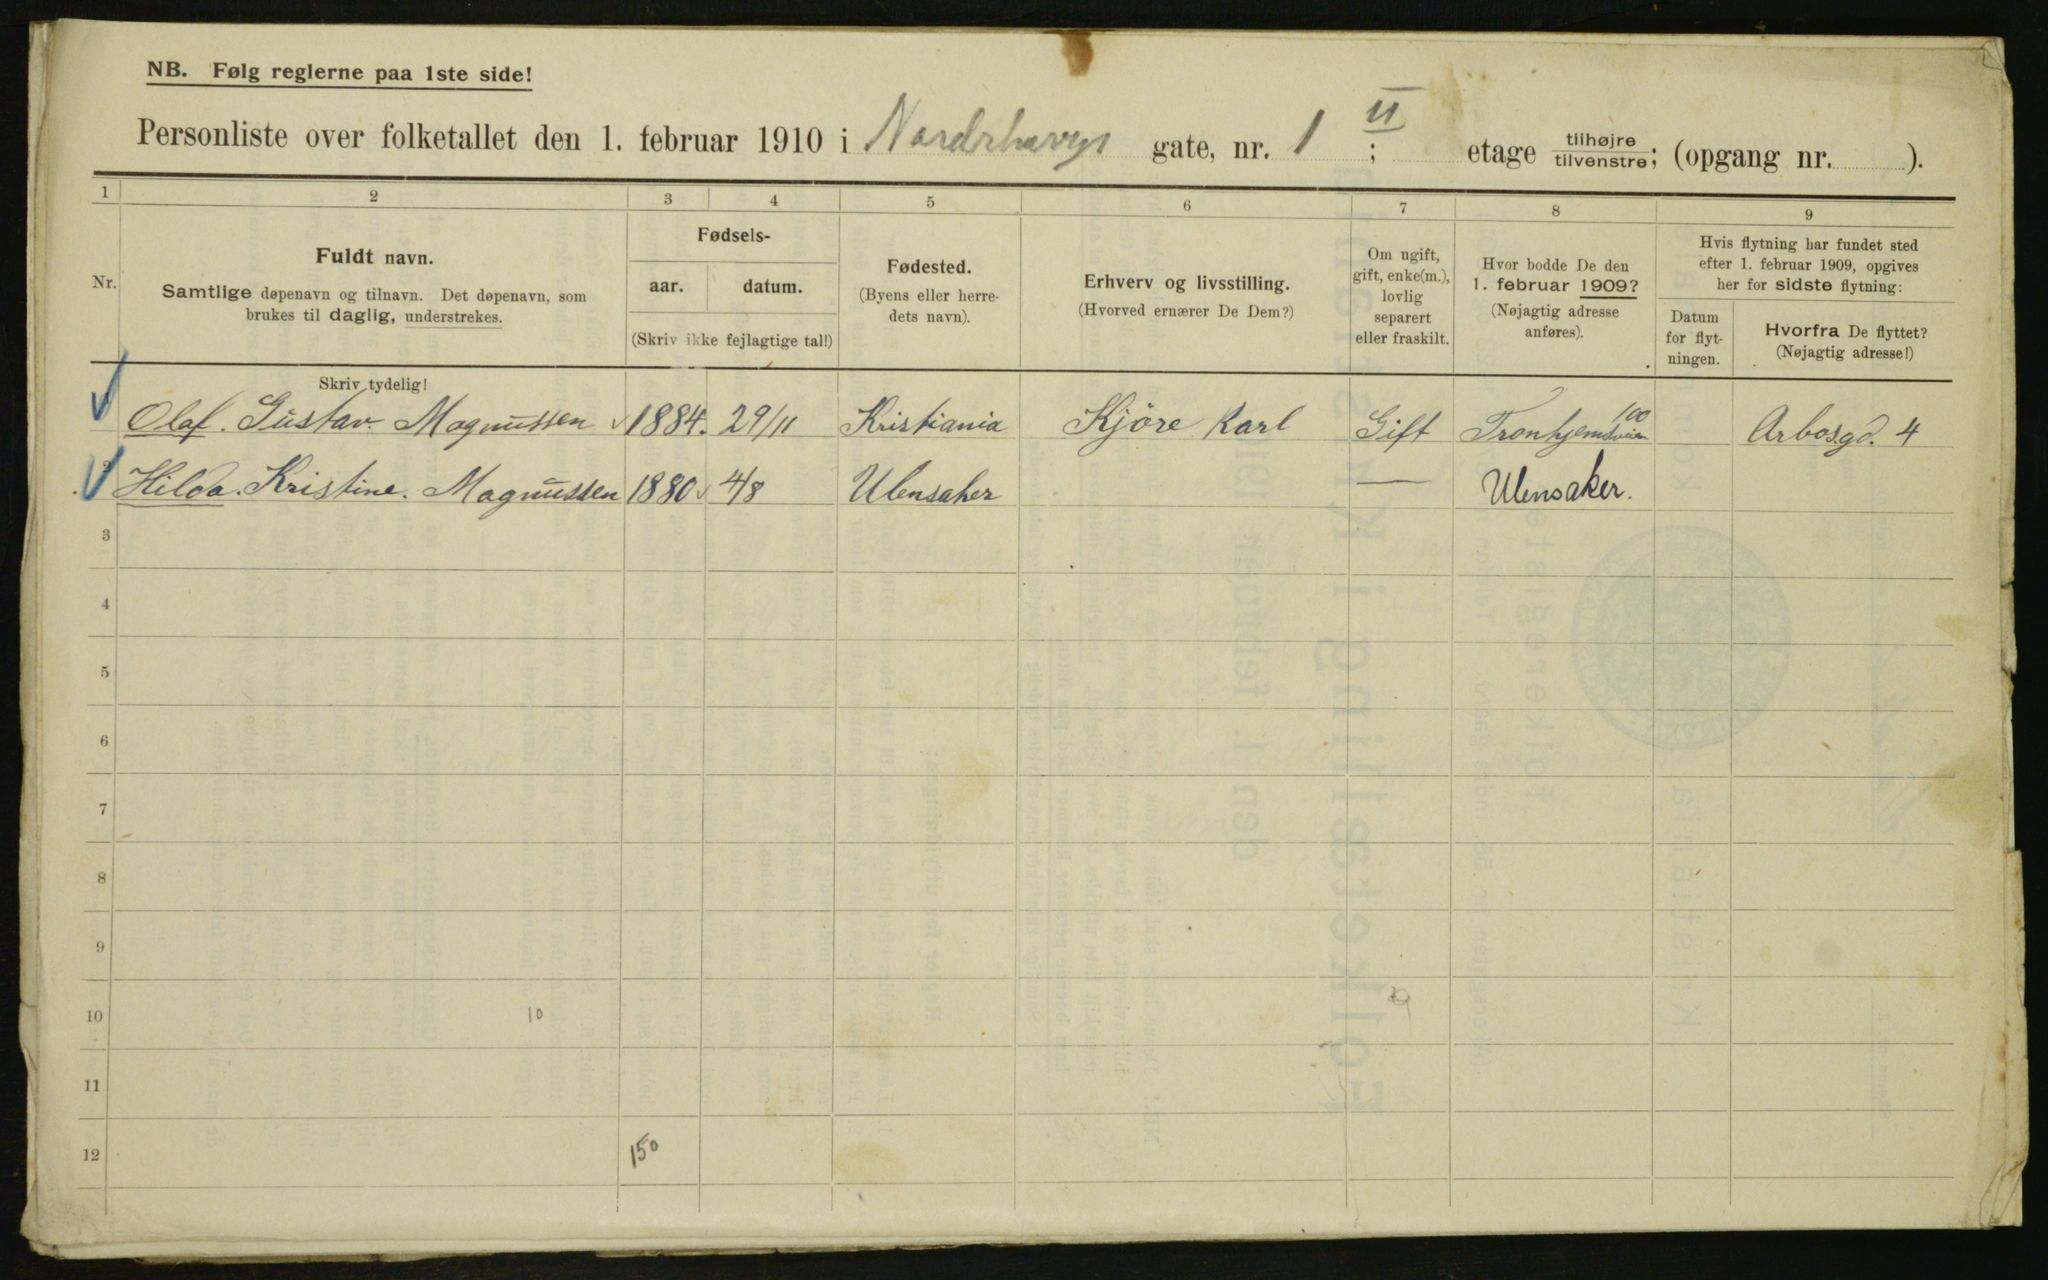 NB. Følg reglerne paa 1ste side!
Personliste over folketallet den 1. februar 1910 i Nordrhavgs gate, nr. 1 ; II etage tilhøjre/tilvenstre; (opgang nr. ).
1 2 3 4 5 6 7 8 9
Nr.
Fuldt navn.
Samtlige døpenavn og tilnavn. Det døpenavn, som
brukes til daglig, understrekes.
Fødsels-
aar. datum.
(Skriv ikke fejlagtige tal!)
Fødested.
(Byens eller herre-
dets navn).
Erhverv og livsstilling.
(Hvorved ernærer De Dem?)
Om ugift,
gift, enke(m.),
lovlig
separert
eller fraskilt.
Hvor bodde De den
1. februar 1909?
(Nøjagtig adresse
anføres).
Hvis flytning har fundet sted
efter 1. februar 1909, opgives
her for sidste flytning:
Datum
for flyt-
ningen.
Hvorfra De flyttet?
(Nøjagtig adresse!)
Skriv tydelig!
Olaf. Gustav. Magnussen 1884. 29/11 Kristiania Kjöre Karl Gift Tronhjemsveien 100 Arbosgd. 4
2 Hilda. Kristine. Magnussen 1880 4/8 Ulensaker — Ulensaker.
3
4
5
6
7
8
9
10 10
11
12 150